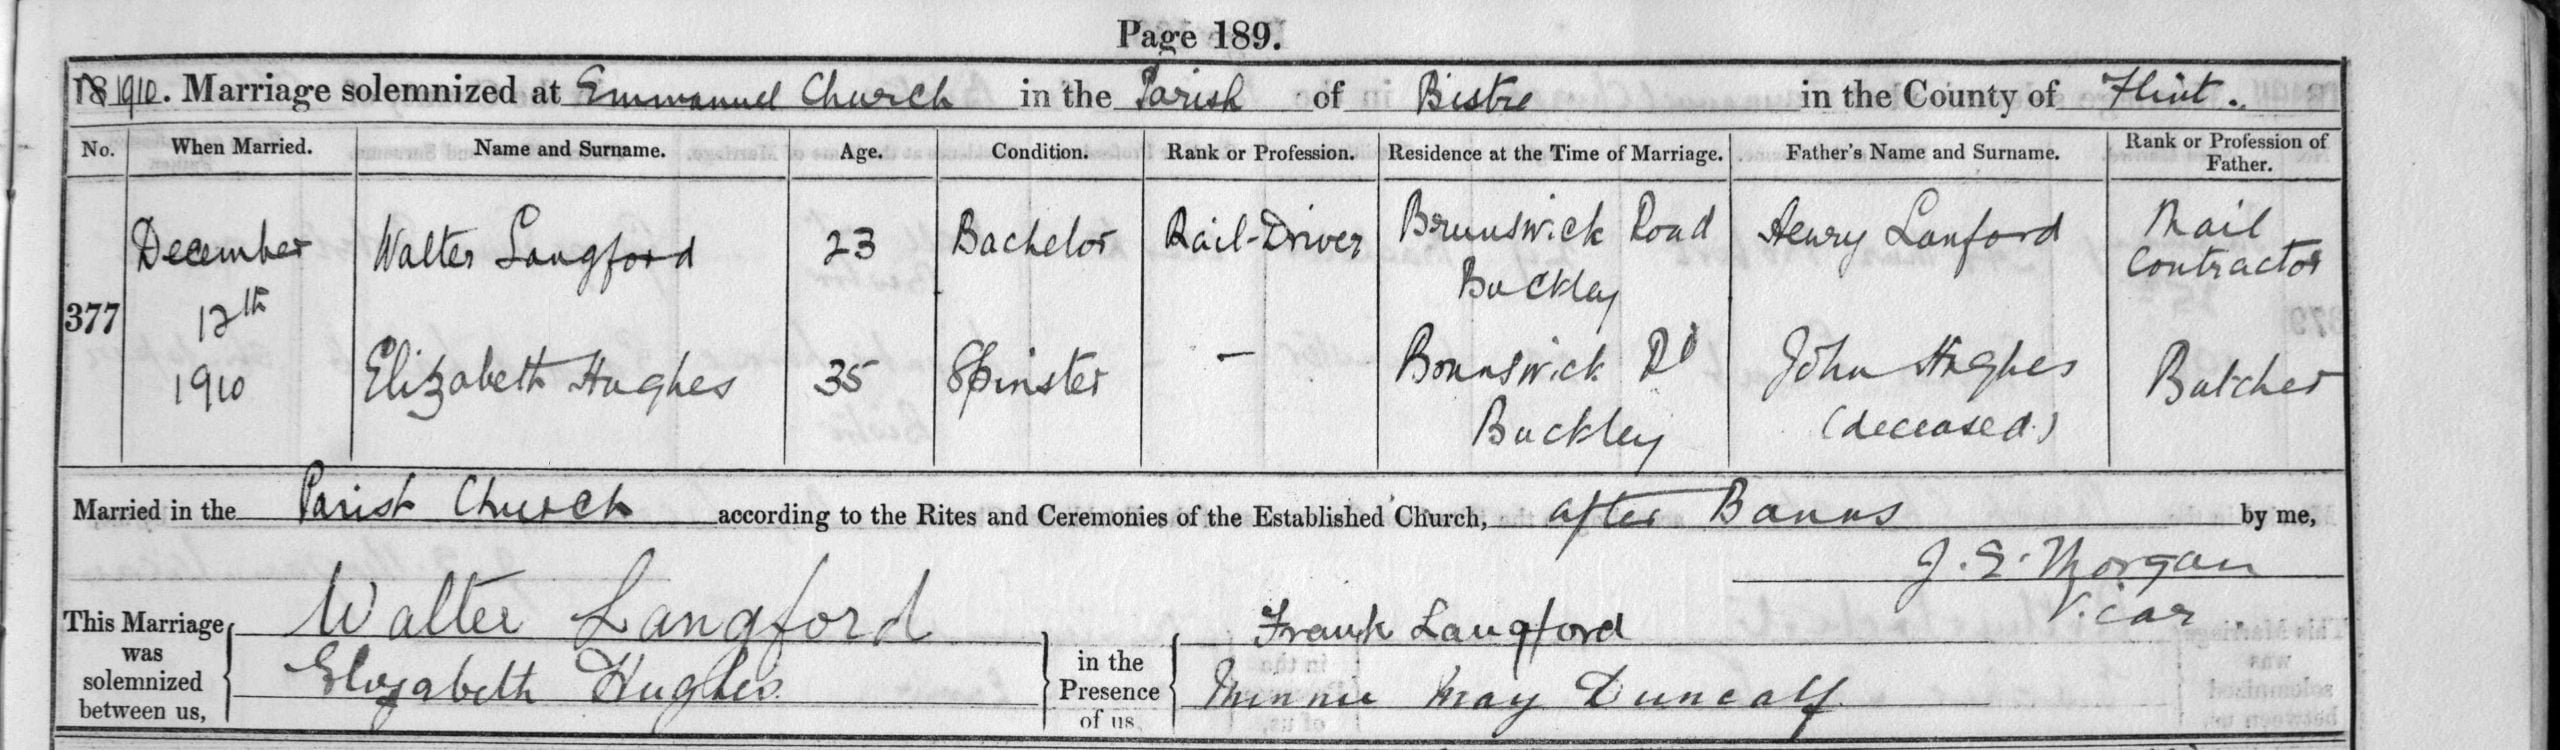 Page 189.
18 1910. Marriage solemnized at Emmanuel Church in the Parish of Bistre in the County of Flint.
No. When Married. Name and Surname. Age. Condition. Rank or Profession. Residence at the Time of Marriage. Father's Name and Surname. Rank or Profession of Father.
377 December 12th 1910
Walter Langford 23 Bachelor Rail-Driver Brunswick Road Buckley Henry Lanford Mail Contractor
Elizabeth Hughes 35 Spinster — Brunswick Rd Buckley John Hughes (deceased) Butcher
Married in the Parish Church according to the Rites and Ceremonies of the Established Church, after Banns by me,
J. E. Morgan
Vicar
This Marriage was solemnized between us,
Walter Langford
Elizabeth Hughes
in the Presence of us,
Frank Langford
Minnie May Duncalf